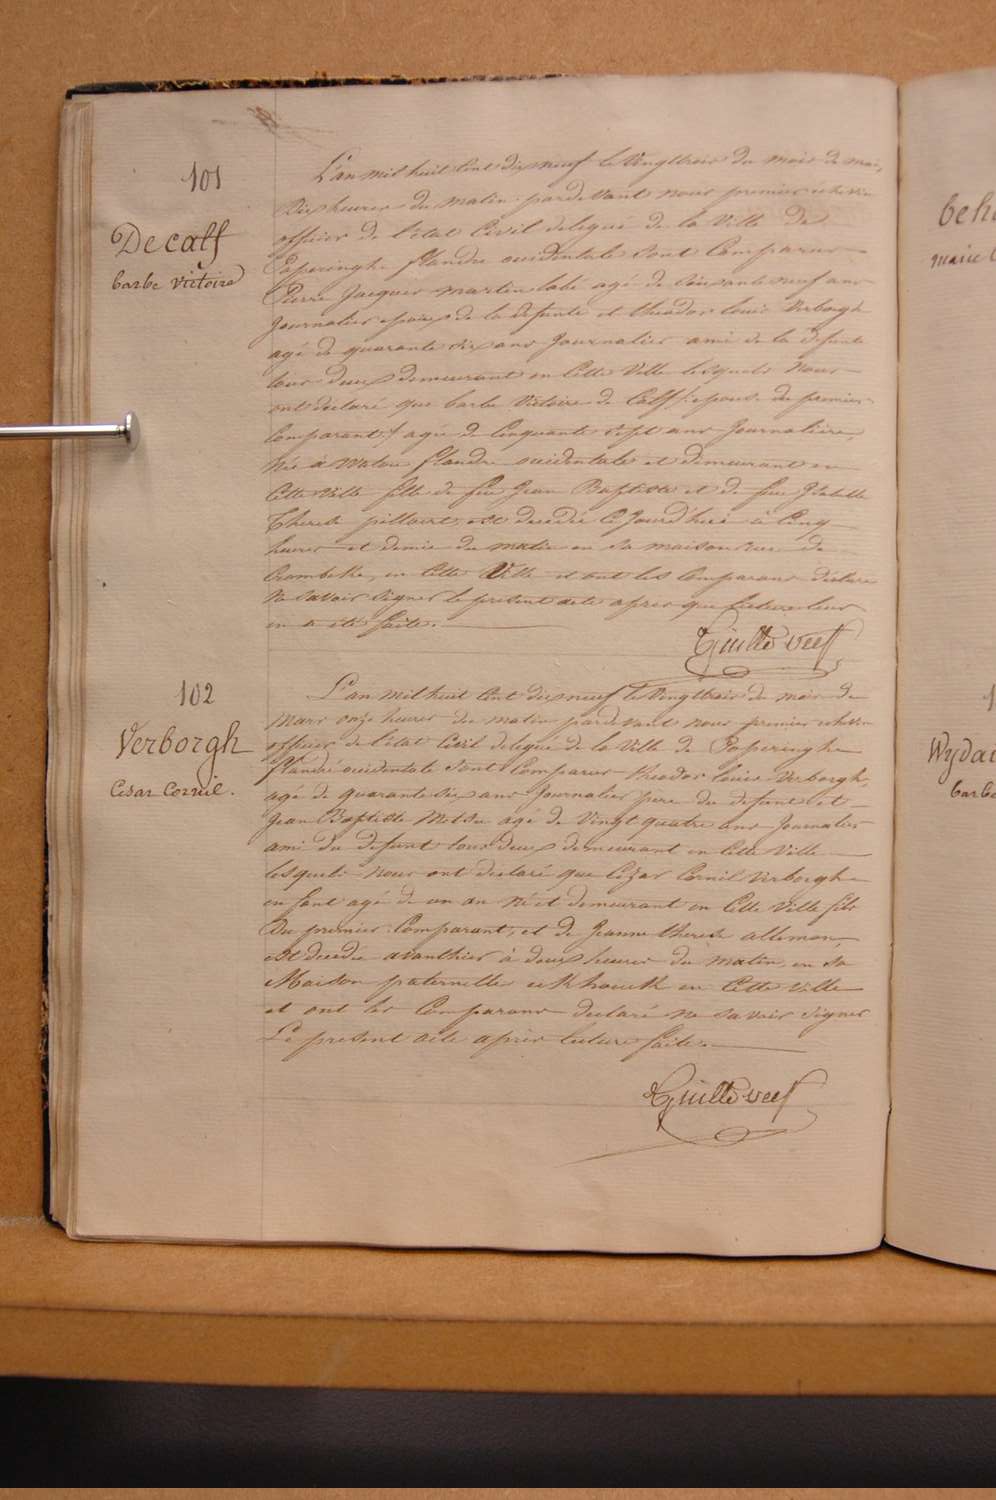 101
Decalf
barbe victoire
L'an mil huit Cent dix neuf le vingttrois du mois de mars,
dix heures du matin pardevant nous premier echevin
officier de l'etat Civil delegué de la Ville de
Poperinghe flandre occidentale sont Comparus
Pierre Jacques martin labé agé de soixante neuf ans
Journalier epoux de la defunte et theodor louis Verborgh
agé de quarante six ans Journalier ami de la defunte
tous deux demeurant en Cette Ville lesquels nous
ont declaré que barbe Victoire de Calf /: epouse du premier
Comparant :/ agée de Cinquante sept ans Journaliere,
née à watou flandre occidentale et demeurant en
Cette Ville fille de feu Jean Baptiste et de feu Isabelle
Therese pillaert, est decedée Ce Jourd'hui à Cinq
heures et demie du matin en sa maison rue de
Crombeke, en Cette Ville et ont les Comparans declaré
ne savoir signer le present acte apres que lecture leur
en a été faite.
102
Verborgh
Cesar Cornil.
L'an mil huit Cent dix neuf le vingttrois du mois de
mars onze heures du matin pardevant nous premier echevin
officier de l'etat Civil delegué de la Ville de Poperinghe
flandre occidentale sont Comparus theodor louis Verborgh
agé de quarante six ans Journalier pere du defunt et
Jean Baptiste Metsu agé de vingt quatre ans Journalier
ami du defunt tous deux demeurant en Cette Ville
lesquels nous ont declaré que Cézar Cornil Verborgh
enfant agé de un an né et demeurant en Cette Ville fils
du premier Comparant, et de Jeanne therese alleman,
est decedé avanthier à deux heures du matin, en sa
Maison paternelle en Cette Ville
et ont les Comparans declaré ne savoir signer
Le present acte après lecture faite.
beh
marie
Wyda
barb